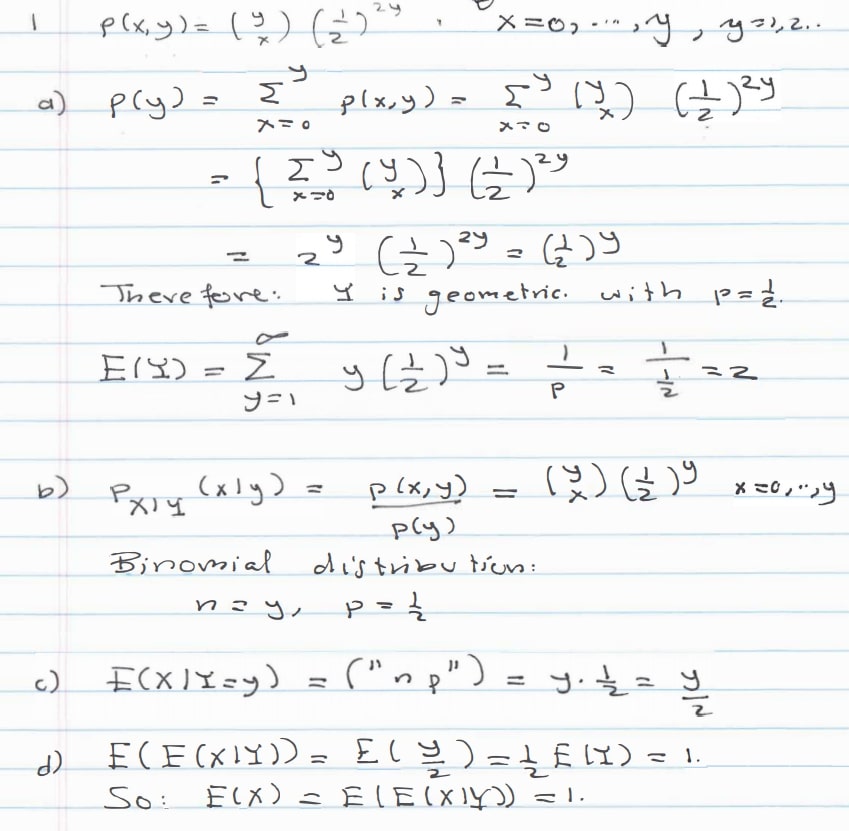 1 p(x,y) = (y x) (1/2)^2y , x=0, ..., y , y=1,2..
a) p(y) = Σ_{x=0}^{y} p(x,y) = Σ_{x=0}^{y} (y x) (1/2)^2y
= { Σ_{x=0}^{y} (y x)} (1/2)^2y
= 2^y (1/2)^2y = (1/2)^y
Therefore: Y is geometric. with p=1/2.
E(Y) = Σ_{y=1}^{∞} y (1/2)^y = 1/p = 1/(1/2) = 2
b) P_X|Y (x|y) = p(x,y)/p(y) = (y x) (1/2)^y x=0,..,y
Binomial distribution:
n = y, p = 1/2
c) E(X|Y=y) = ("np") = y · 1/2 = y/2
d) E(E(X|Y)) = E(y/2) = 1/2 E(Y) = 1.
So: E(X) = E(E(X|Y)) = 1.